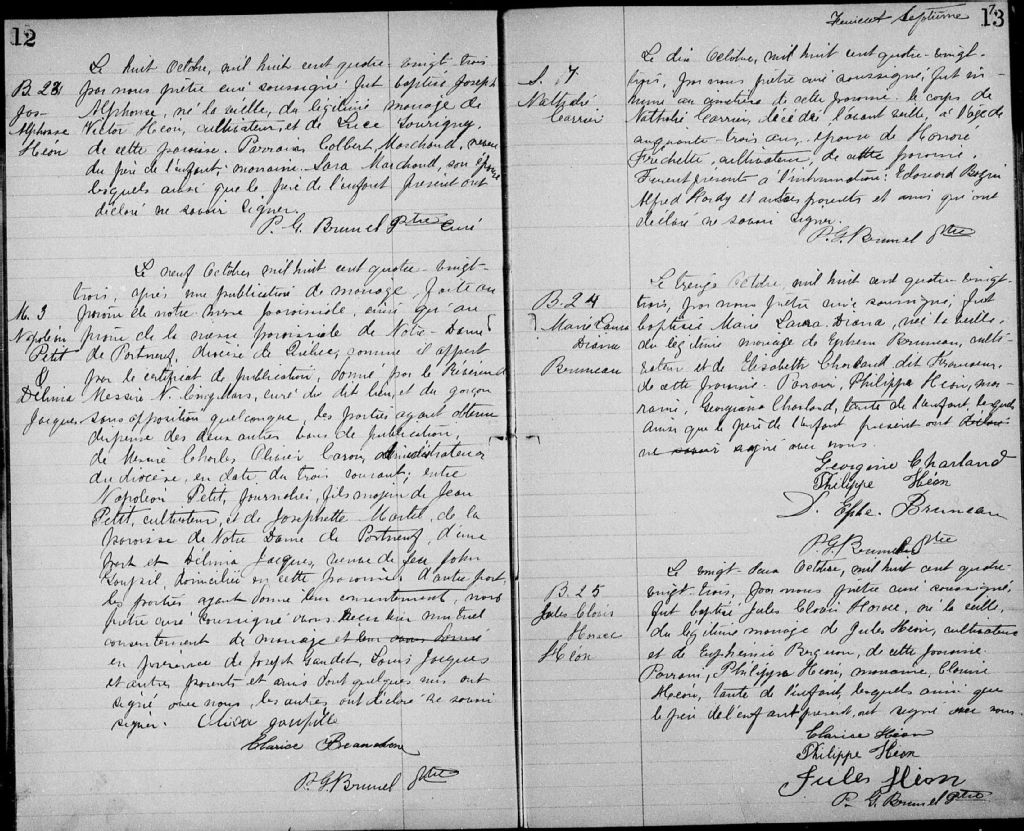 12
Le huit Octobre, mil huit cent quatre-vingt-trois
B. 23 par nous prêtre curé soussigné, fut baptisé Joseph
Jos- Alphonse, né la veille, du légitime mariage de
Alphonse Victor Héon, cultivateur, et de Luce Tourigny,
Héon de cette paroisse. Parrain Colbert Marchand,
du père de l'enfant; marraine Sara Marchand, son épouse
lesquels ainsi que le père de l'enfant présent ont
déclaré ne savoir signer.
P. G. Brunel Ptre Curé
Le neuf Octobre mil huit cent quatre-vingt-
trois, après une publication de mariage, faite au
M. 9 prône de notre messe paroissiale, ainsi qu'au
Napoléon prône de la messe paroissiale de Notre-Dame
Petit de Portneuf, diocèse de Québec, comme il appert
& par le certificat de publication, donné par le Révérend
Délima Messire N. Cinq-Mars, curé du dit lieu, et du garçon
Jacques sans opposition quelconque, les parties ayant obtenu
dispense des deux autres bans de publication,
de Messire Charles Olivier Caron, administrateur
du diocèse, en date du trois courant; entre
Napoléon Petit, journalier, fils majeur de Jean
Petit, cultivateur, et de Josephette Martel, de la
paroisse de Notre Dame de Portneuf, d'une
part et Délima Jacques, veuve de feu John
domiciliée en cette paroisse d'autre part,
les parties ayant donné leur consentement, nous
prêtre curé soussigné avons reçu leur mutuel
consentement de mariage et leur avons donné
en présence de Joseph Gaudet, Louis Jacques
et autres parents et amis dont quelques uns ont
signé avec nous, les autres ont déclaré ne savoir
signer.
Clarise Beaudoin
P. G. Brunel Ptre
Feuillet Septième 13
Le dix Octobre, mil huit cent quatre-vingt-
S. 17 trois, par nous prêtre curé soussigné, fut in-
Nathalie humé au cimetière de cette paroisse le corps de
Carrier Nathalie Carrier, décédée l'avant veille, à l'âge de
cinquante-trois ans, épouse de Honoré
Fréchette cultivateur, de cette paroisse.
Furent présents à l'inhumation: Edouard
Alfred Hardy et autres parents et amis qui ont
déclaré ne savoir signer.
P. G. Brunel Ptre
Le treize Octobre, mil huit cent quatre-vingt-
B. 24 trois, par nous prêtre curé soussigné, fut
Marie Laura baptisée Marie Laura Diana, née la veille
Diana du légitime mariage de Ephrem Bruneau, culti-
Bruneau vateur et de Elisabeth Charland dit Francoeur,
de cette paroisse. Parrain, Philippe Héon, mar-
raine, Georgiana Charland, tante de l'enfant lesquels
ainsi que le père de l'enfant présent ont déclaré
ne savoir signé avec nous.
Georgine Charland
Philippe Héon
Ephr. Bruneau
P. G. Brunel Ptre
Le vingt-deux Octobre, mil huit cent quatre-
B. 25 vingt-trois, par nous prêtre curé soussigné,
Jules Clovis fut baptisé Jules Clovis Horace, né la veille,
Horace du légitime mariage de Jules Héon, cultivateur
Héon et de Euphémie Bergeron, de cette paroisse.
Parrain, Philippe Héon, marraine, Clarisse
Héon, tante de l'enfant, lesquels ainsi que
le père de l'enfant présent, ont signé avec nous.
Clarise Héon
Philippe Héon
Jules Héon
P. G. Brunel Ptre